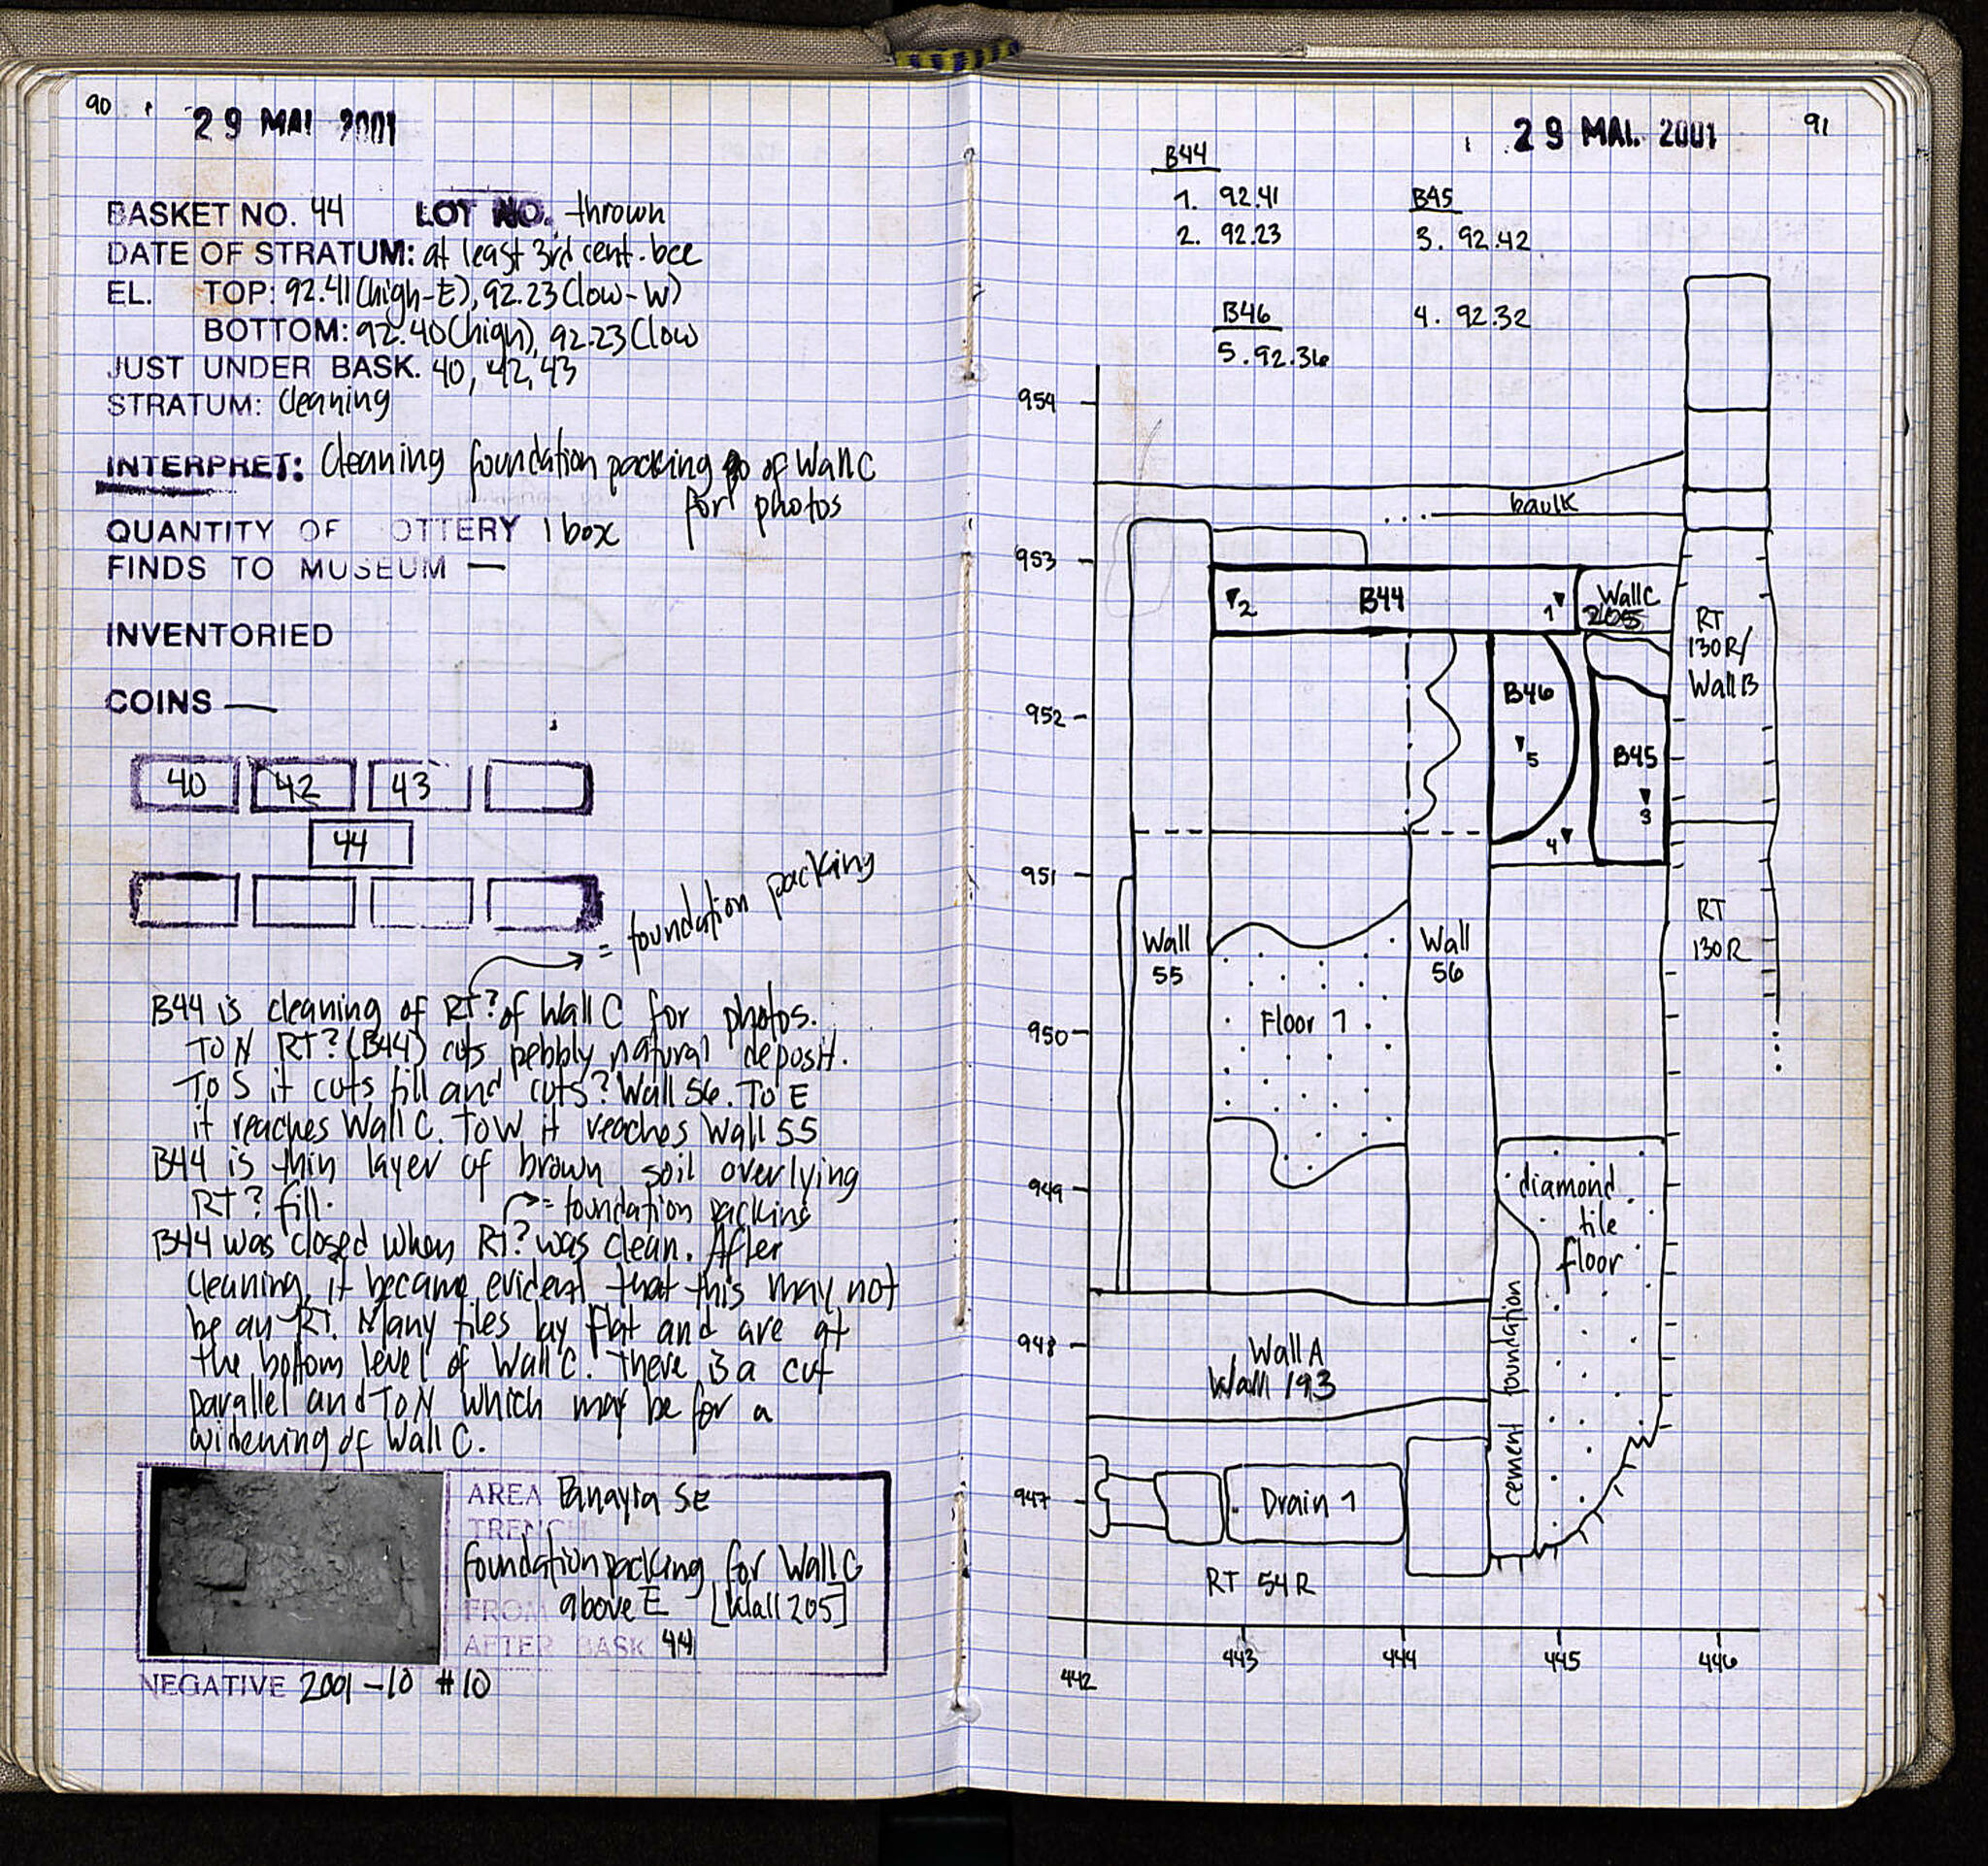 90
29 MAI 2001
BASKET NO. 44 LOT NO. thrown
DATE OF STRATUM: at least 3rd cent. bce
EL. TOP: 92.41(high-E), 92.23(low-W)
BOTTOM: 92.40(high), 92.23(low
JUST UNDER BASK. 40, 42, 43
STRATUM: cleaning
INTERPRET: Cleaning foundation packing of Wall C
for photos
QUANTITY OF POTTERY 1 box
FINDS TO MUSEUM —
INVENTORIED
COINS —
40 42 43
44
= foundation packing
B44 is cleaning of RT? of Wall C for photos.
TO N RT? (B44) cuts pebbly natural deposit.
TO S it cuts fill and cuts? Wall 56. TO E
it reaches Wall C. TO W it reaches Wall 55
B44 is thin layer of brown soil overlying
RT? fill.
= foundation packing
B44 was closed when RT? was clean. After
cleaning, it became evident that this may not
be an RT. Many tiles lay flat and are at
the bottom level of Wall C. There is a cut
parallel and TO N which may be for a
widening of Wall C.
AREA Panayia SE
TRENCH
foundation packing for Wall C
FROM above E [Wall 205]
AFTER BASK 44
NEGATIVE 2001-10 #10
29 MAI. 2001
91
B44
1. 92.41
2. 92.23
B45
3. 92.42
4. 92.32
B46
5. 92.36
954
baulk
953
2 B44 1
Wall C
205
RT
130R/
Wall B
952
B46
5
B45
3
4
951
Wall
55
Wall
56
RT
130R
950
Floor 1
949
diamond
tile
floor
948
Wall A
Wall 193
cement foundation
947
Drain 1
RT 54R
442 443 444 445 446